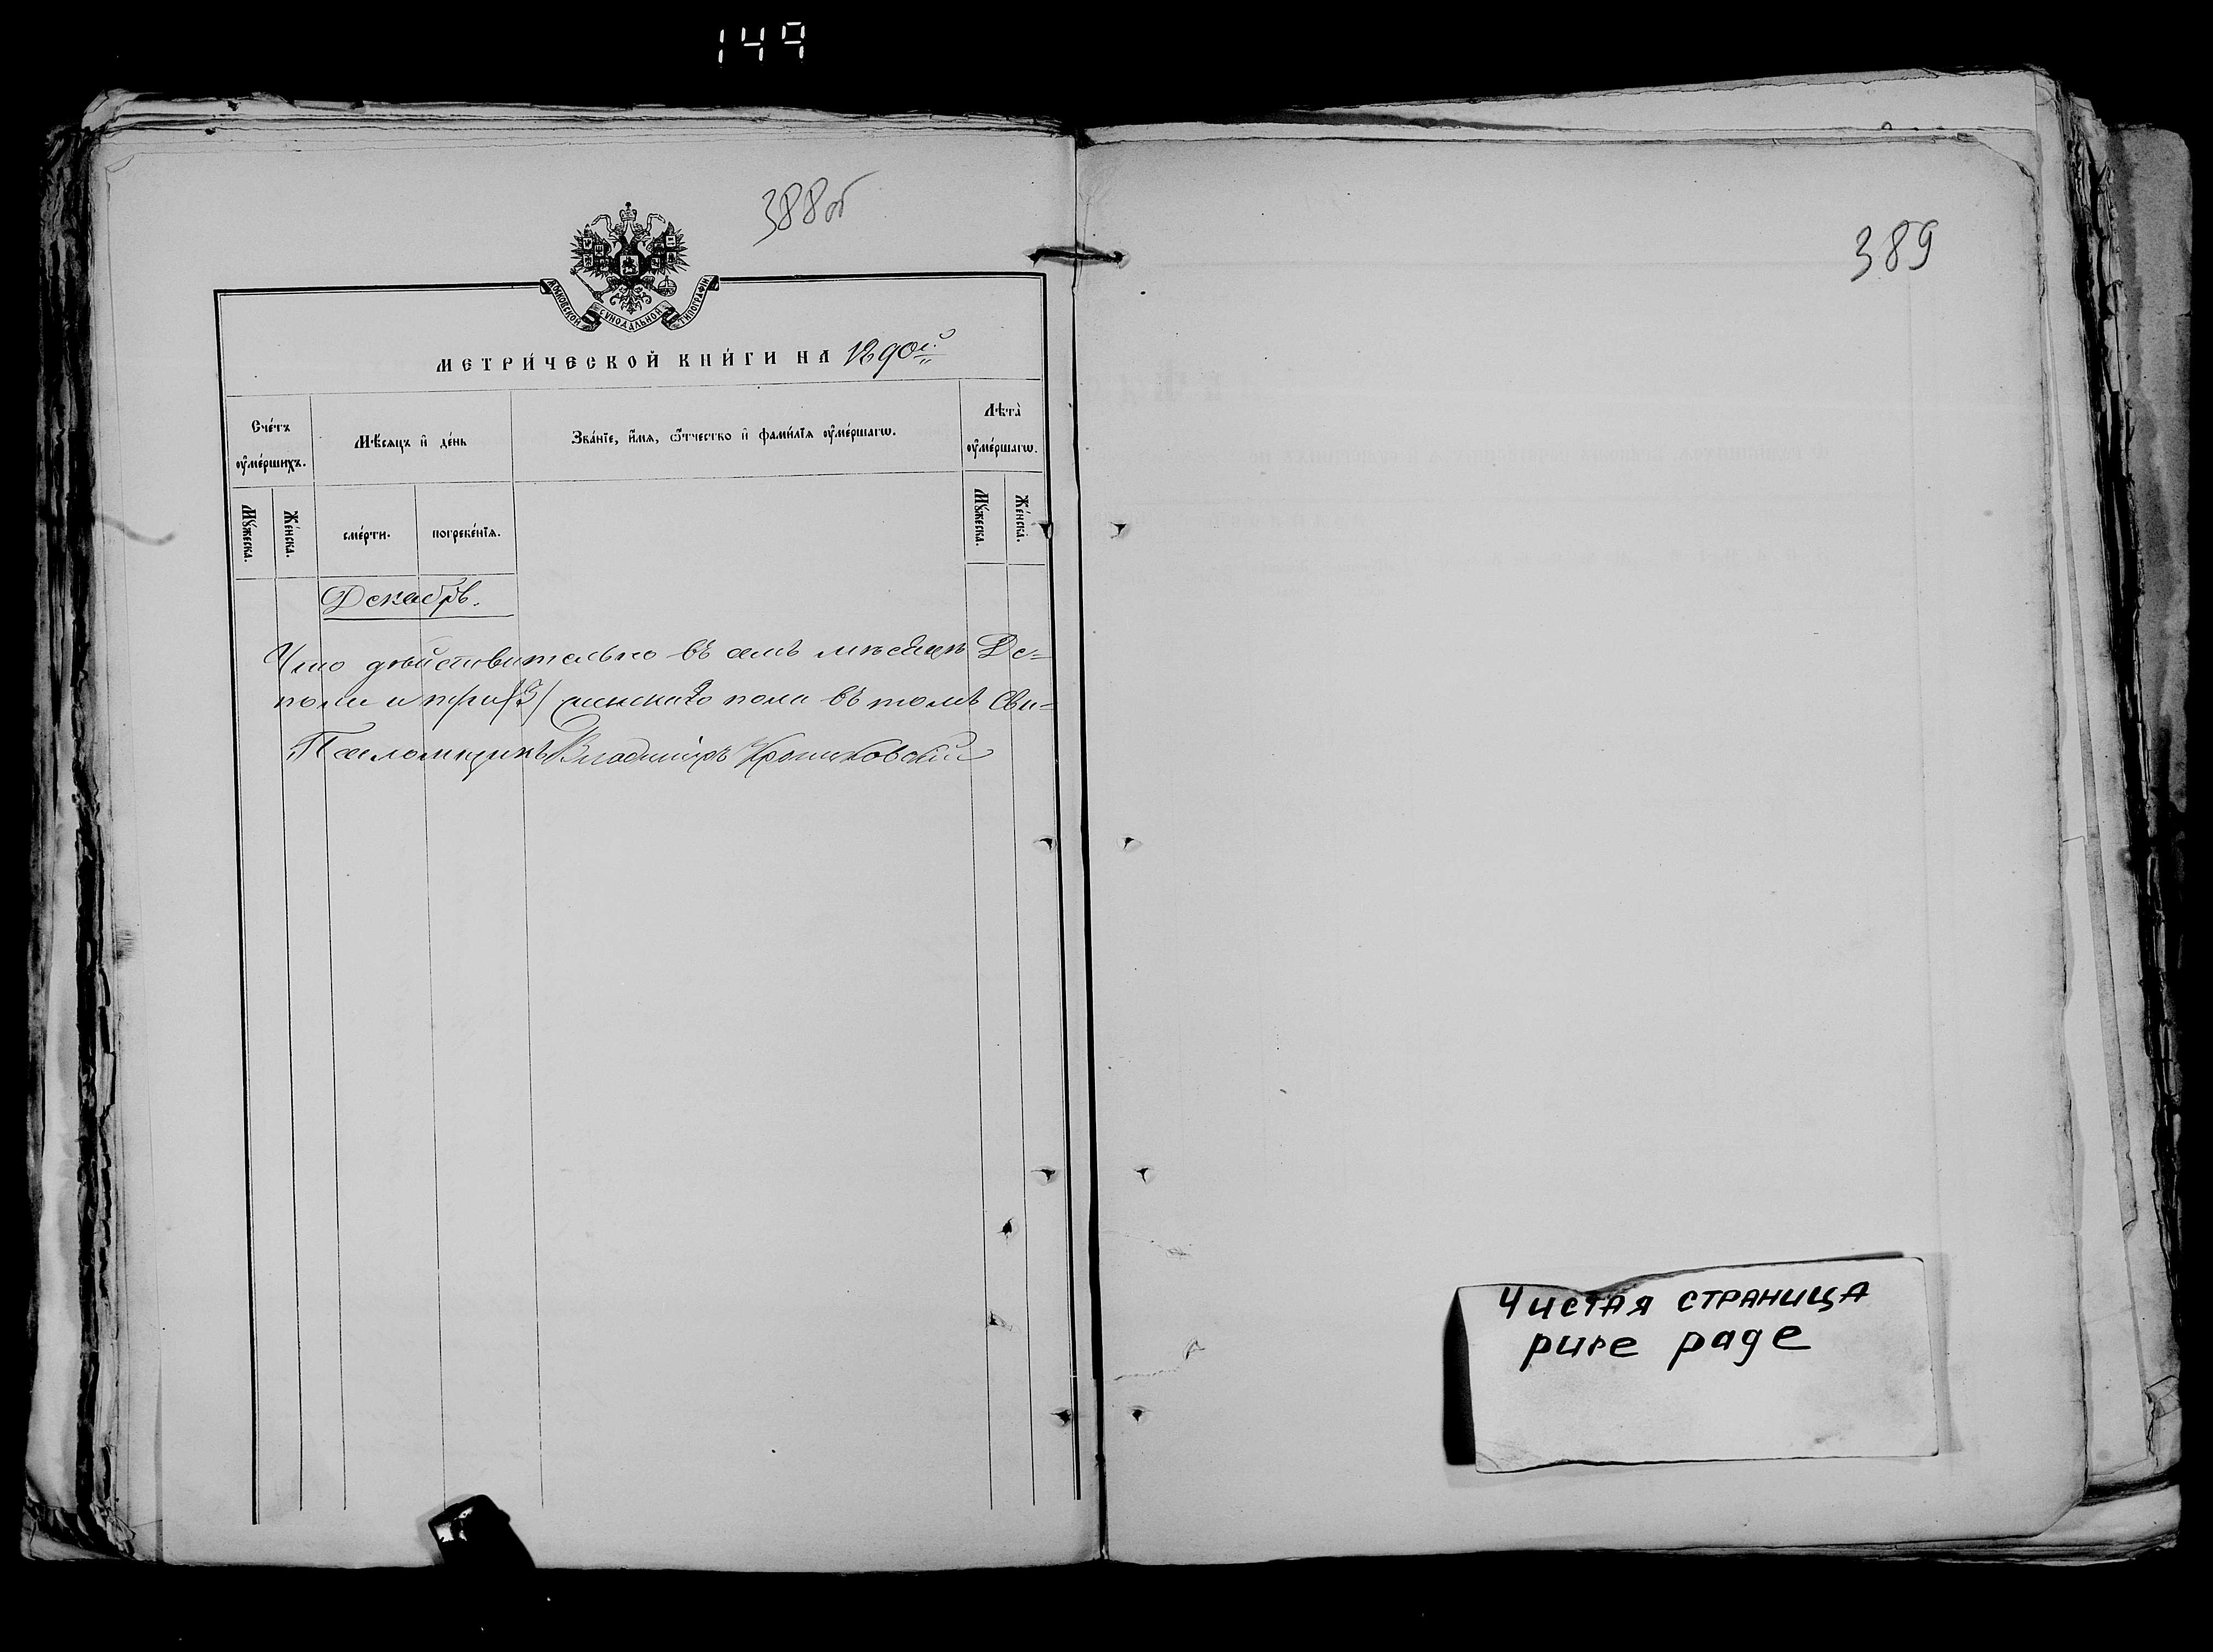 149
388об
МОСКОВСКОЙ СУНОДАЛЬНОЙ ТИПОГРАФІИ
МЕТРИ́ЧЕСКОЙ КНИ́ГИ НА 1890й
Сче́тъ ᲂу҆ме́ршихъ.
Мѣ́сяцъ и҆ де́нь
Зва́нїе, и҆́мѧ, ѻ҆́тчество и҆ фами́лїѧ ᲂу҆ме́ршагѡ.
Лѣта̀ ᲂу҆ме́ршагѡ.
Мꙋ́жеска.
Же́нска.
сме́рти.
погребе́нїѧ.
Мꙋ́жеска.
Же́нска.
Декабрь.
Что дѣйствительно въ семъ мѣсяцѣ Де=
пола и три /3/ женскаго пола въ томъ Сви=
Псаломщикъ Владиміръ
389
Чистая страница
pure page